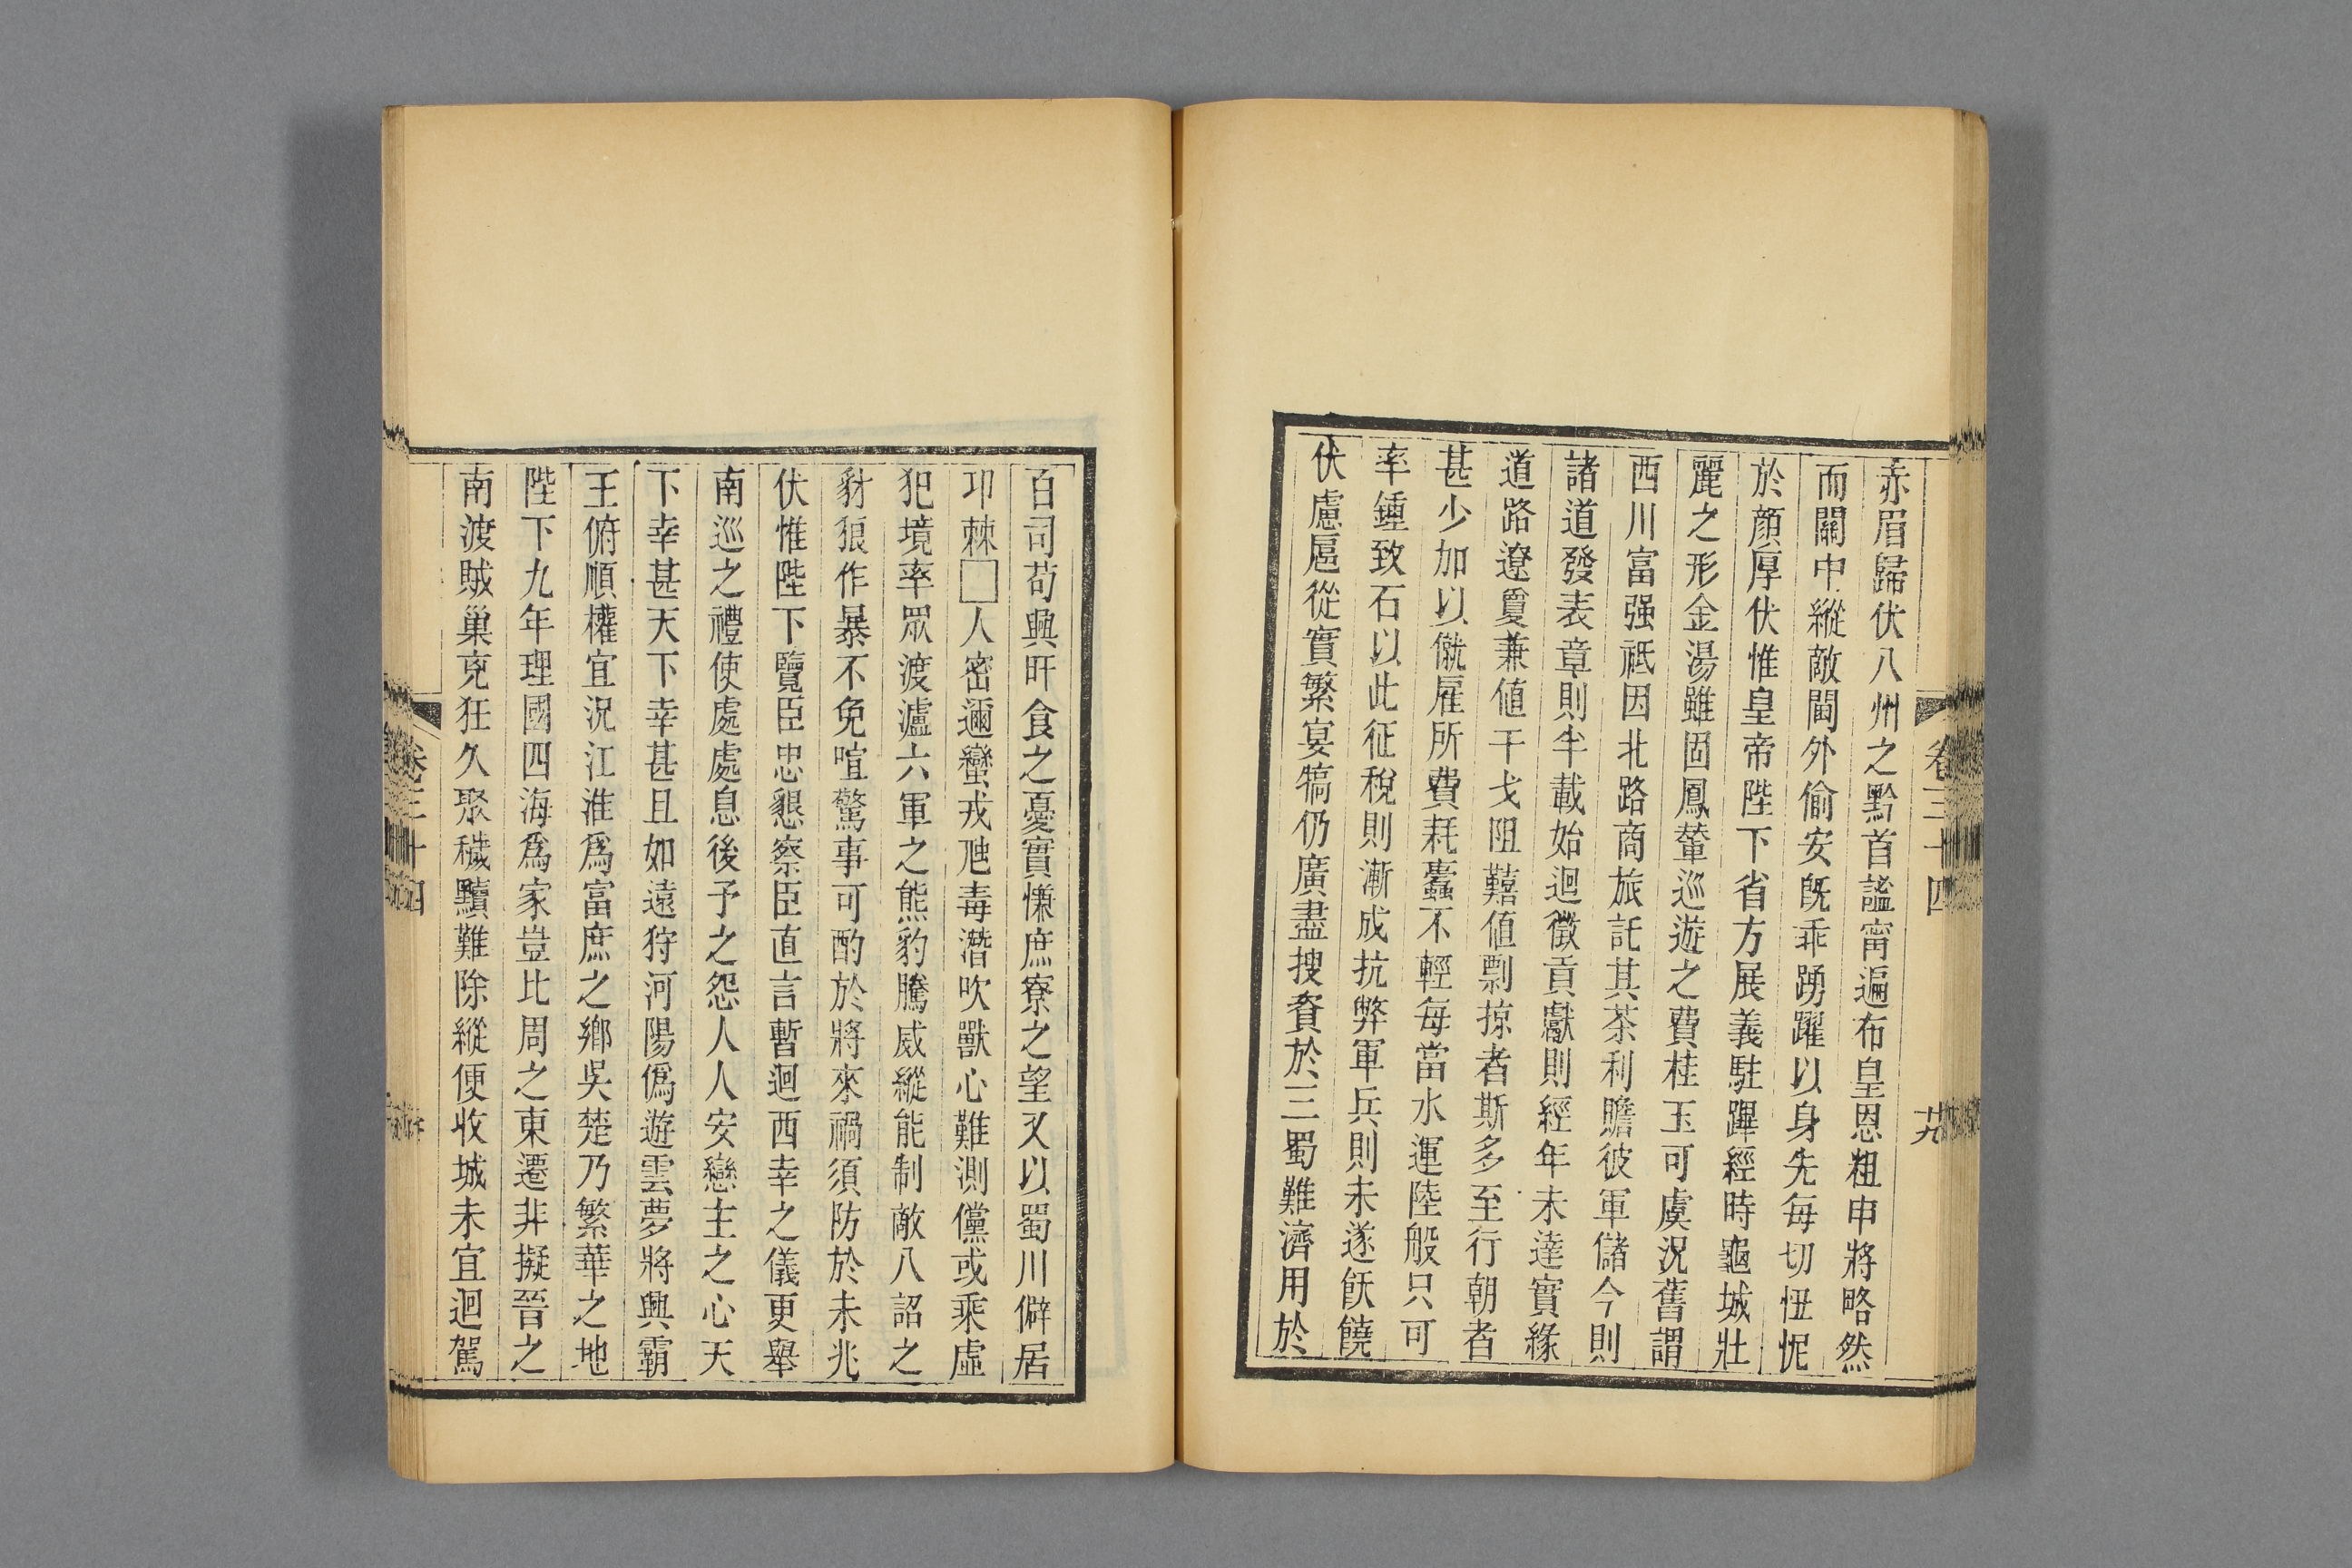 赤眉歸伏八州之黔首謐甯遍布皇恩粗申將略然
而關中縱敵閫外偷安旣乖踴躍以身先每切忸怩
於顏厚伏惟皇帝陛下省方展義駐蹕經時龜城壯
麗之形金湯雖固鳳輦巡遊之費桂玉可虞況舊謂
西川富强祗因北路商旅託其茶利贍彼軍儲今則
諸道發表章則半載始迴徵貢獻則經年未達實緣
道路遼敻兼値干戈阻囏値剽掠者斯多至行朝者
甚少加以僦雇所費耗蠹不輕每當水運陸般只可
率鍾致石以此征稅則漸成抗弊軍兵則未遂飫饒
伏慮扈從實繁宴犒仍廣盡搜賚於三蜀難濟用於
百司苟興旰食之憂實慊庶寮之望又以蜀川僻居
卭棘□人密邇蠻戎虺毒潛吹獸心難測儻或乘虛
犯境率眾渡瀘六軍之熊豹騰威縱能制敵八詔之
豺狼作暴不免喧驚事可酌於將來禍須防於未兆
伏惟陛下覽臣忠懇察臣直言暫迴西幸之儀更舉
南巡之禮使處處息後予之怨人人安戀主之心天
下幸甚天下幸甚且如遠狩河陽僞遊雲夢將興霸
王俯順權宜況江淮爲富庶之鄉吳楚乃繁華之地
陛下九年理國四海爲家豈比周之東遷非擬晉之
南渡賊巢兗狂久聚穢黷難除縱便收城未宜迴駕
卷三十四
廿九